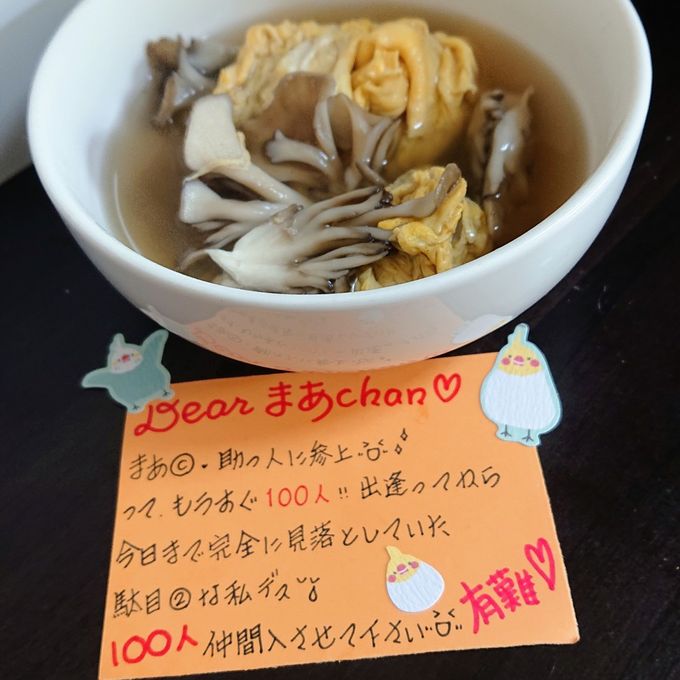 Dear まあchan♡
まあ©.助っ人に参上
って、もうすぐ100人!!出逢ってから
今日まで完全に見落としていた
駄目②な私デス
100人仲間入させて下さい
有難♡